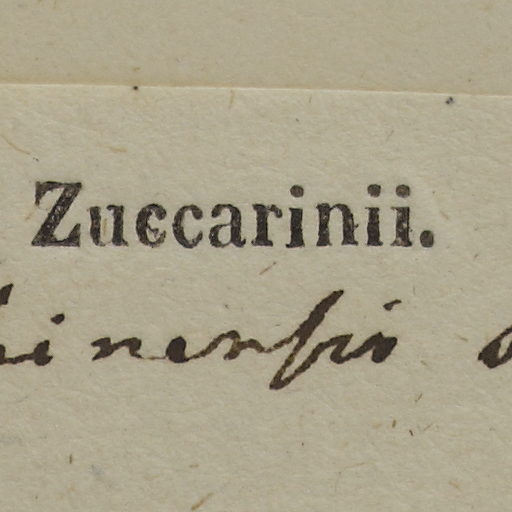 Zuccarinii.
hinensis